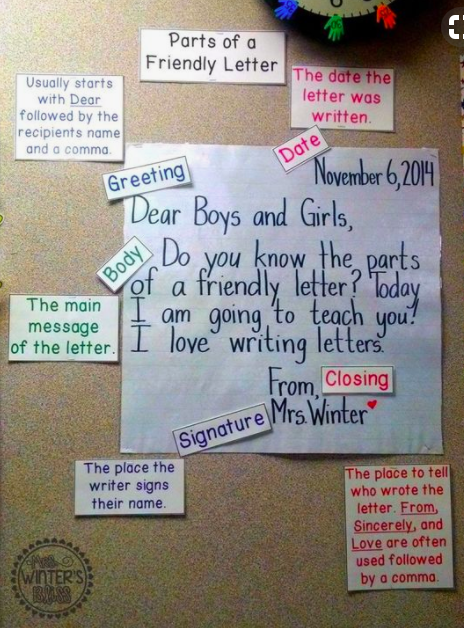 Parts of a
Friendly Letter
Usually starts
with Dear
followed by the
recipients name
and a comma.
The date the
letter was
written.
Date
Greeting
November 6, 2014
Dear Boys and Girls,
Body
Do you know the parts
of a friendly letter? Today
I am going to teach you!
I love writing letters.
The main
message
of the letter.
From,
Closing
Signature
Mrs. Winter
The place the
writer signs
their name.
The place to tell
who wrote the
letter. From,
Sincerely, and
Love are often
used followed
by a comma.
Mrs.
WINTER'S
BLISS